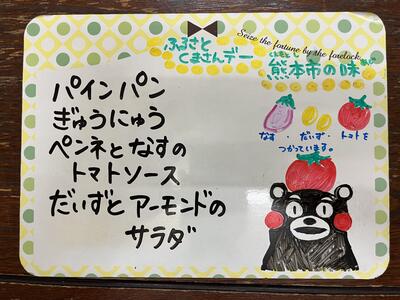 Seize the fortune by the forelock.
ふるさと
くまさんデー
くまもとし あじ
熊本市の味
パインパン
ぎゅうにゅう
ペンネとなすの
トマトソース
だいずとアーモンドの
サラダ
なす・だいず・トマトを
つかっているよ。